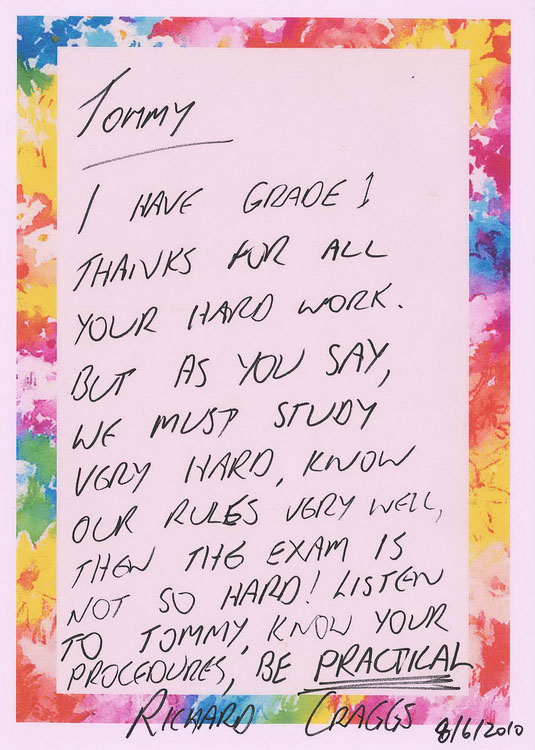 TOMMY
I HAVE GRADE 1
THANKS FOR ALL
YOUR HARD WORK.
BUT AS YOU SAY,
WE MUST STUDY
VERY HARD, KNOW
OUR RULES VERY WELL,
THEN THE EXAM IS
NOT SO HARD! LISTEN
TO TOMMY, KNOW YOUR
PROCEDURES, BE PRACTICAL
RICHARD CRAGGS 8/6/2010